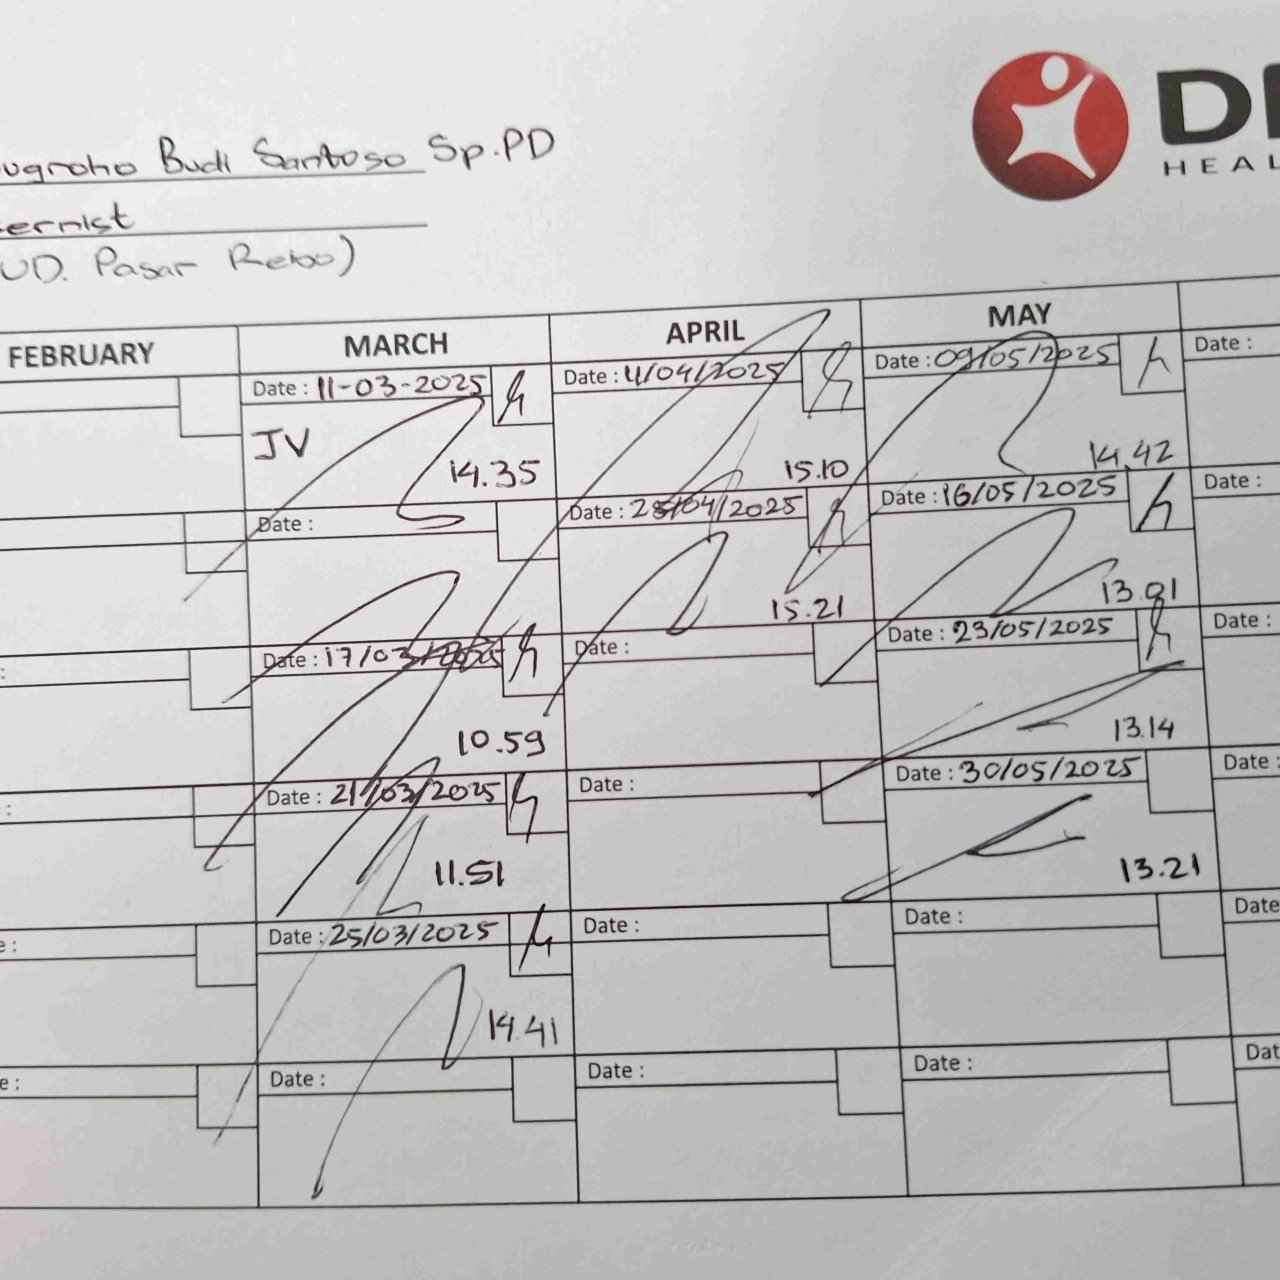 Budi Santoso Sp.PD
Pasar Rebo)
HEAL
FEBRUARY MARCH APRIL MAY
Date : 11-03-2025 Date : 4/04/2025 Date : 09/05/2025 Date :
JV
14.35 15.10 14.42
Date : Date : 25/04/2025 Date : 16/05/2025 Date :
15.21 13.01
Date : 17/03/2025 Date : Date : 23/05/2025 Date :
10.59 13.14
Date : 21/03/2025 Date : Date : 30/05/2025 Date :
11.51 13.21
Date : 25/03/2025 Date : Date : Date
14.41
Date : Date : Date :